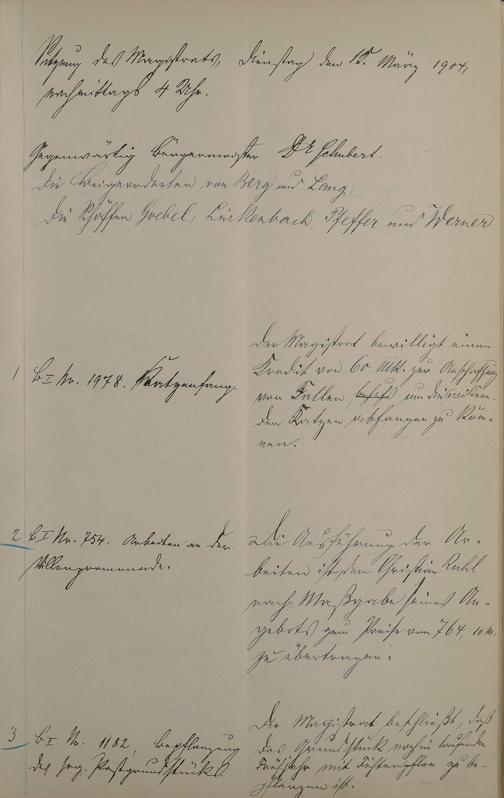 Sitzung des Magistrats, Dienstag den 15. März 1904,
nachmittags 4 Uhr.
Gegenwärtig Bürgermeister Dr Schubert.
die Beigeordneten von Berg und Lang,
die Schöffen Goebel, Lückenbach, Pfeffer und Werner
1 B I Nr. 1978. Katzenfang.
Der Magistrat bewilligt einen
Kredit von 60 Mk. zur Anschaffung
von Fallen, behufs um die wildern-
den Katzen abfangen zu kön-
nen.
2 B I Nr. 754. Arbeiten an der
Villenpromenade.
Die Ausführung der Ar-
beiten ist dem Christian Ruhl
nach Maßgabe seines An-
gebots zum Preise von 764, 10 M.
zu übertragen.
3 B I Nr. 1182, Bepflanzung
des sog. Postgrundstücks.
Der Magistrat beschließt, daß
das Grundstück noch im laufenden
Frühjahr mit zu be-
pflanzen ist.